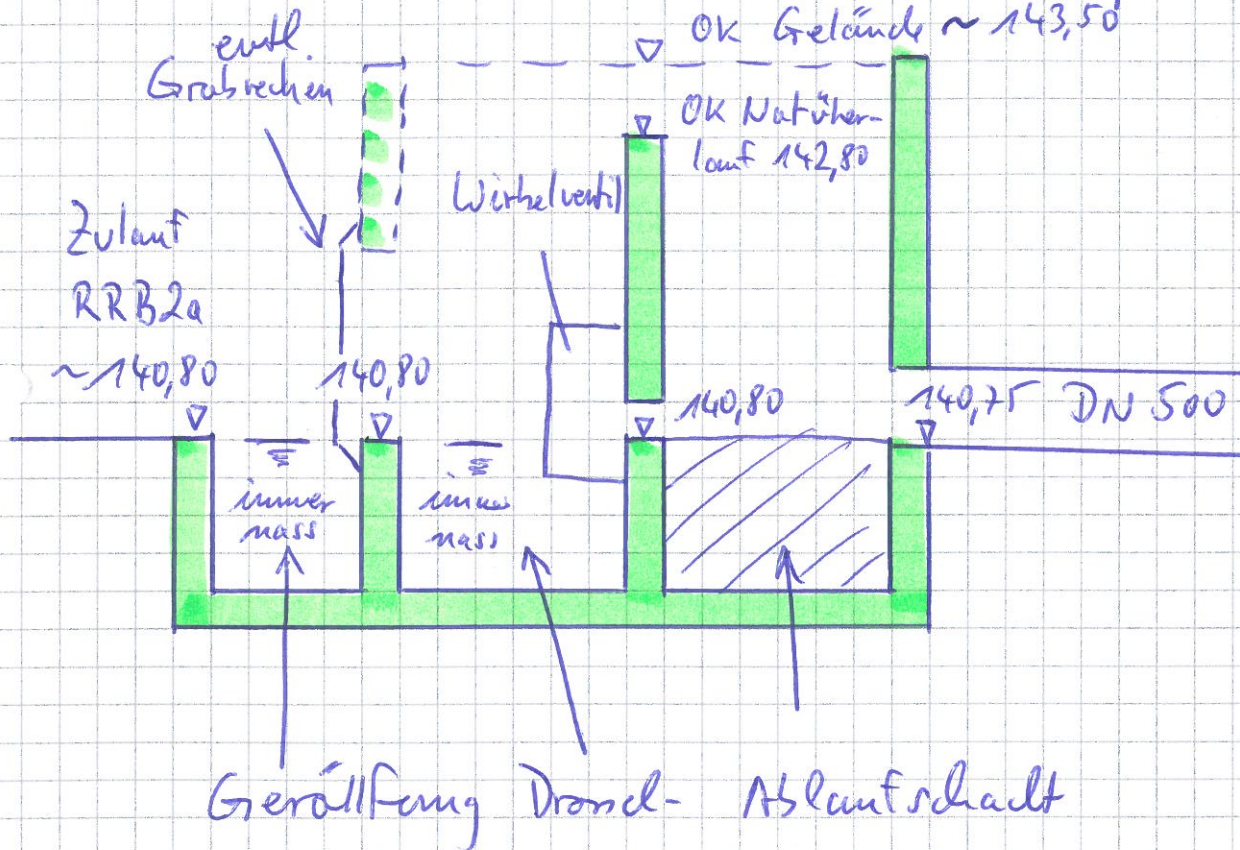 evtl.
Grobrechen
OK Gelände ~ 143,50
OK Notüber-
lauf 142,80
Wirbelventil
Zulauf
RRB2a
~140,80
140,80
140,80
140,75 DN 500
immer
nass
immer
nass
Geröllfang Drossel- Ablaufschacht